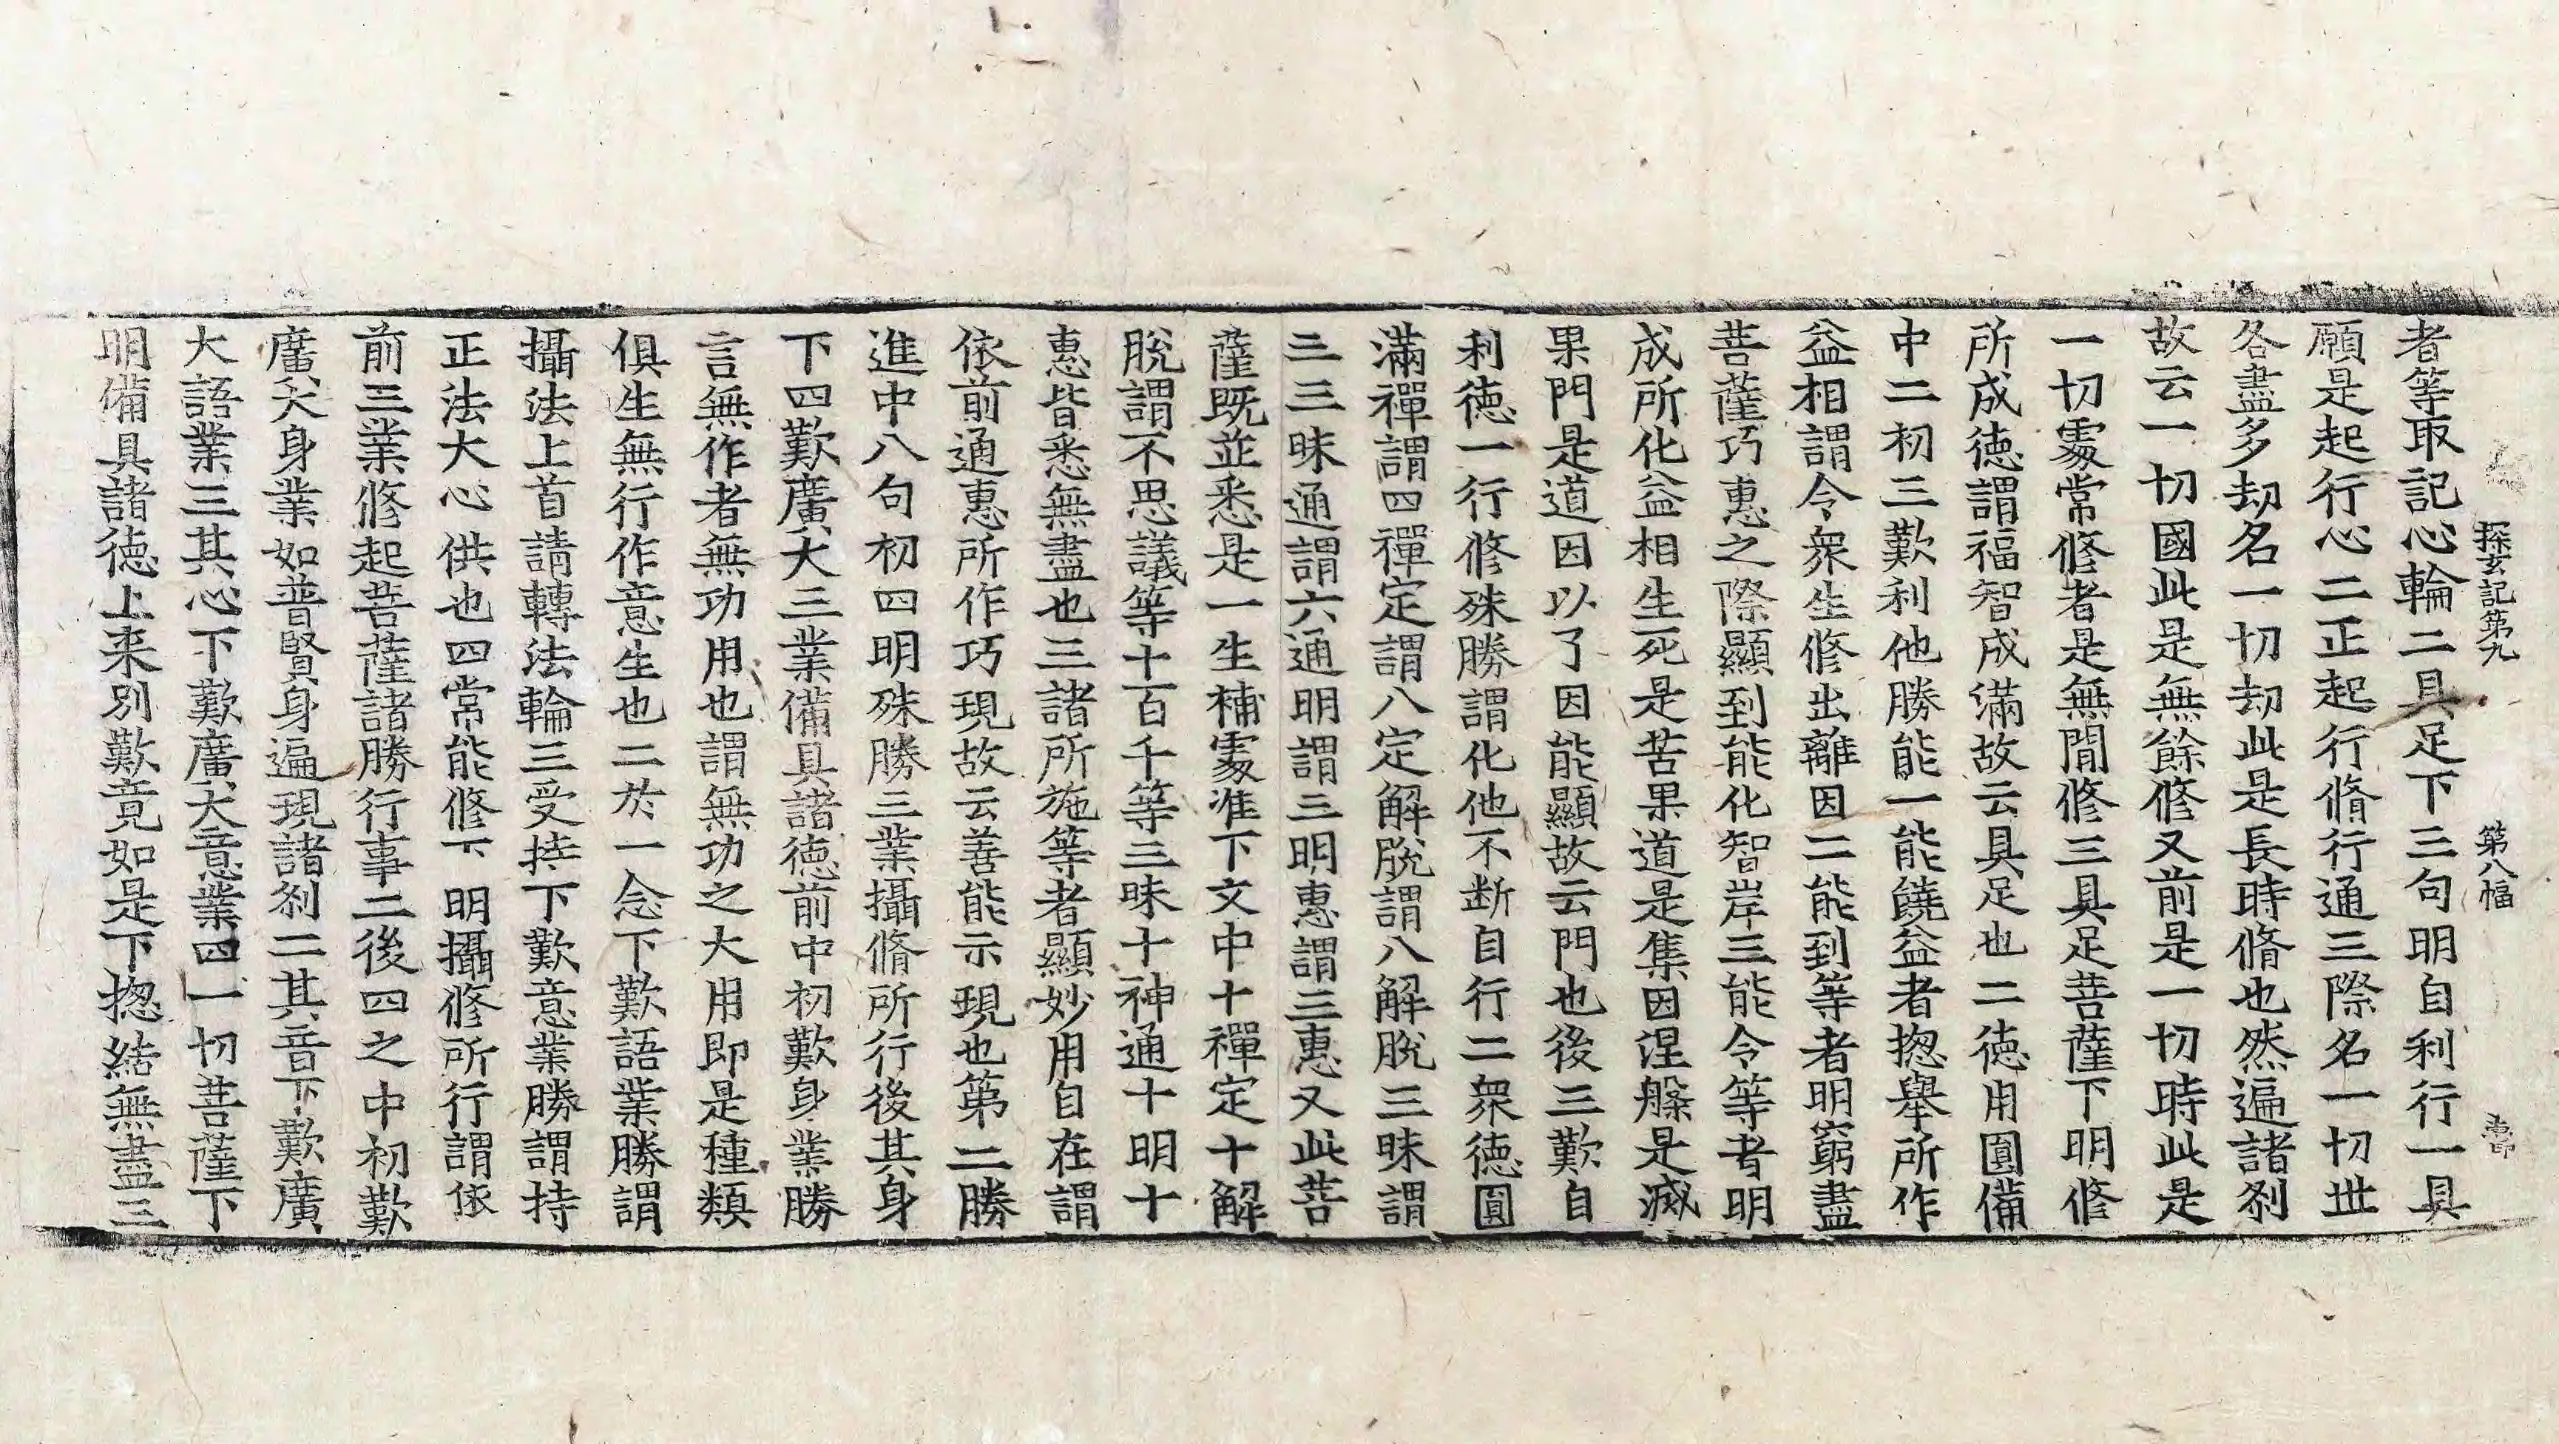 探玄記第九　第八幅　惠印
者等取記心輪二具足下三句明自利行一具
願是起行心二正起行脩行通三際名一切世
各盡多劫名一切劫此是長時脩也然遍諸刹
故云一切國此是無餘修又前是一切時此是
一切處常修者是無間修三具足菩薩下明修
所成德謂福智成滿故云具足也二德用圓備
中二初三歎利他勝能一能饒益者揔舉所作
益相謂令衆生修出離因二能到等者明窮盡
菩薩巧惠之際顯到能化智岸三能令等者明
成所化益相生死是苦果道是集因涅槃是滅
果門是道因以了因能顯故云門也後三歎自
利德一行修殊勝謂化他不断自行二衆德圓
滿禪謂四禪定謂八定解脫謂八解脫三昧謂
三三昧通謂六通明謂三明惠謂三惠又此菩
薩既並悉是一生補處准下文中十禪定十解
脫謂不思議等十百千等三昧十神通十明十
惠皆悉無盡也三諸所施等者顯妙用自在謂
依前通惠所作巧現故云善能示現也第二勝
進中八句初四明殊勝三業攝脩所行後其身
下四歎廣大三業備具諸德前中初歎身業勝
言無作者無功用也謂無功之大用即是種類
俱生無行作意生也二於一念下歎語業勝謂
攝法上首請轉法輪三受持下歎意業勝謂持
正法大心供也四常能修下明攝修所行謂依
前三業修起菩薩諸勝行事二後四之中初歎
廣大身業如普賢身遍現諸刹二其音下歎廣
大語業三其心下歎廣大意業四一切菩薩下
明備具諸德上来別歎竟如是下揔結無盡三